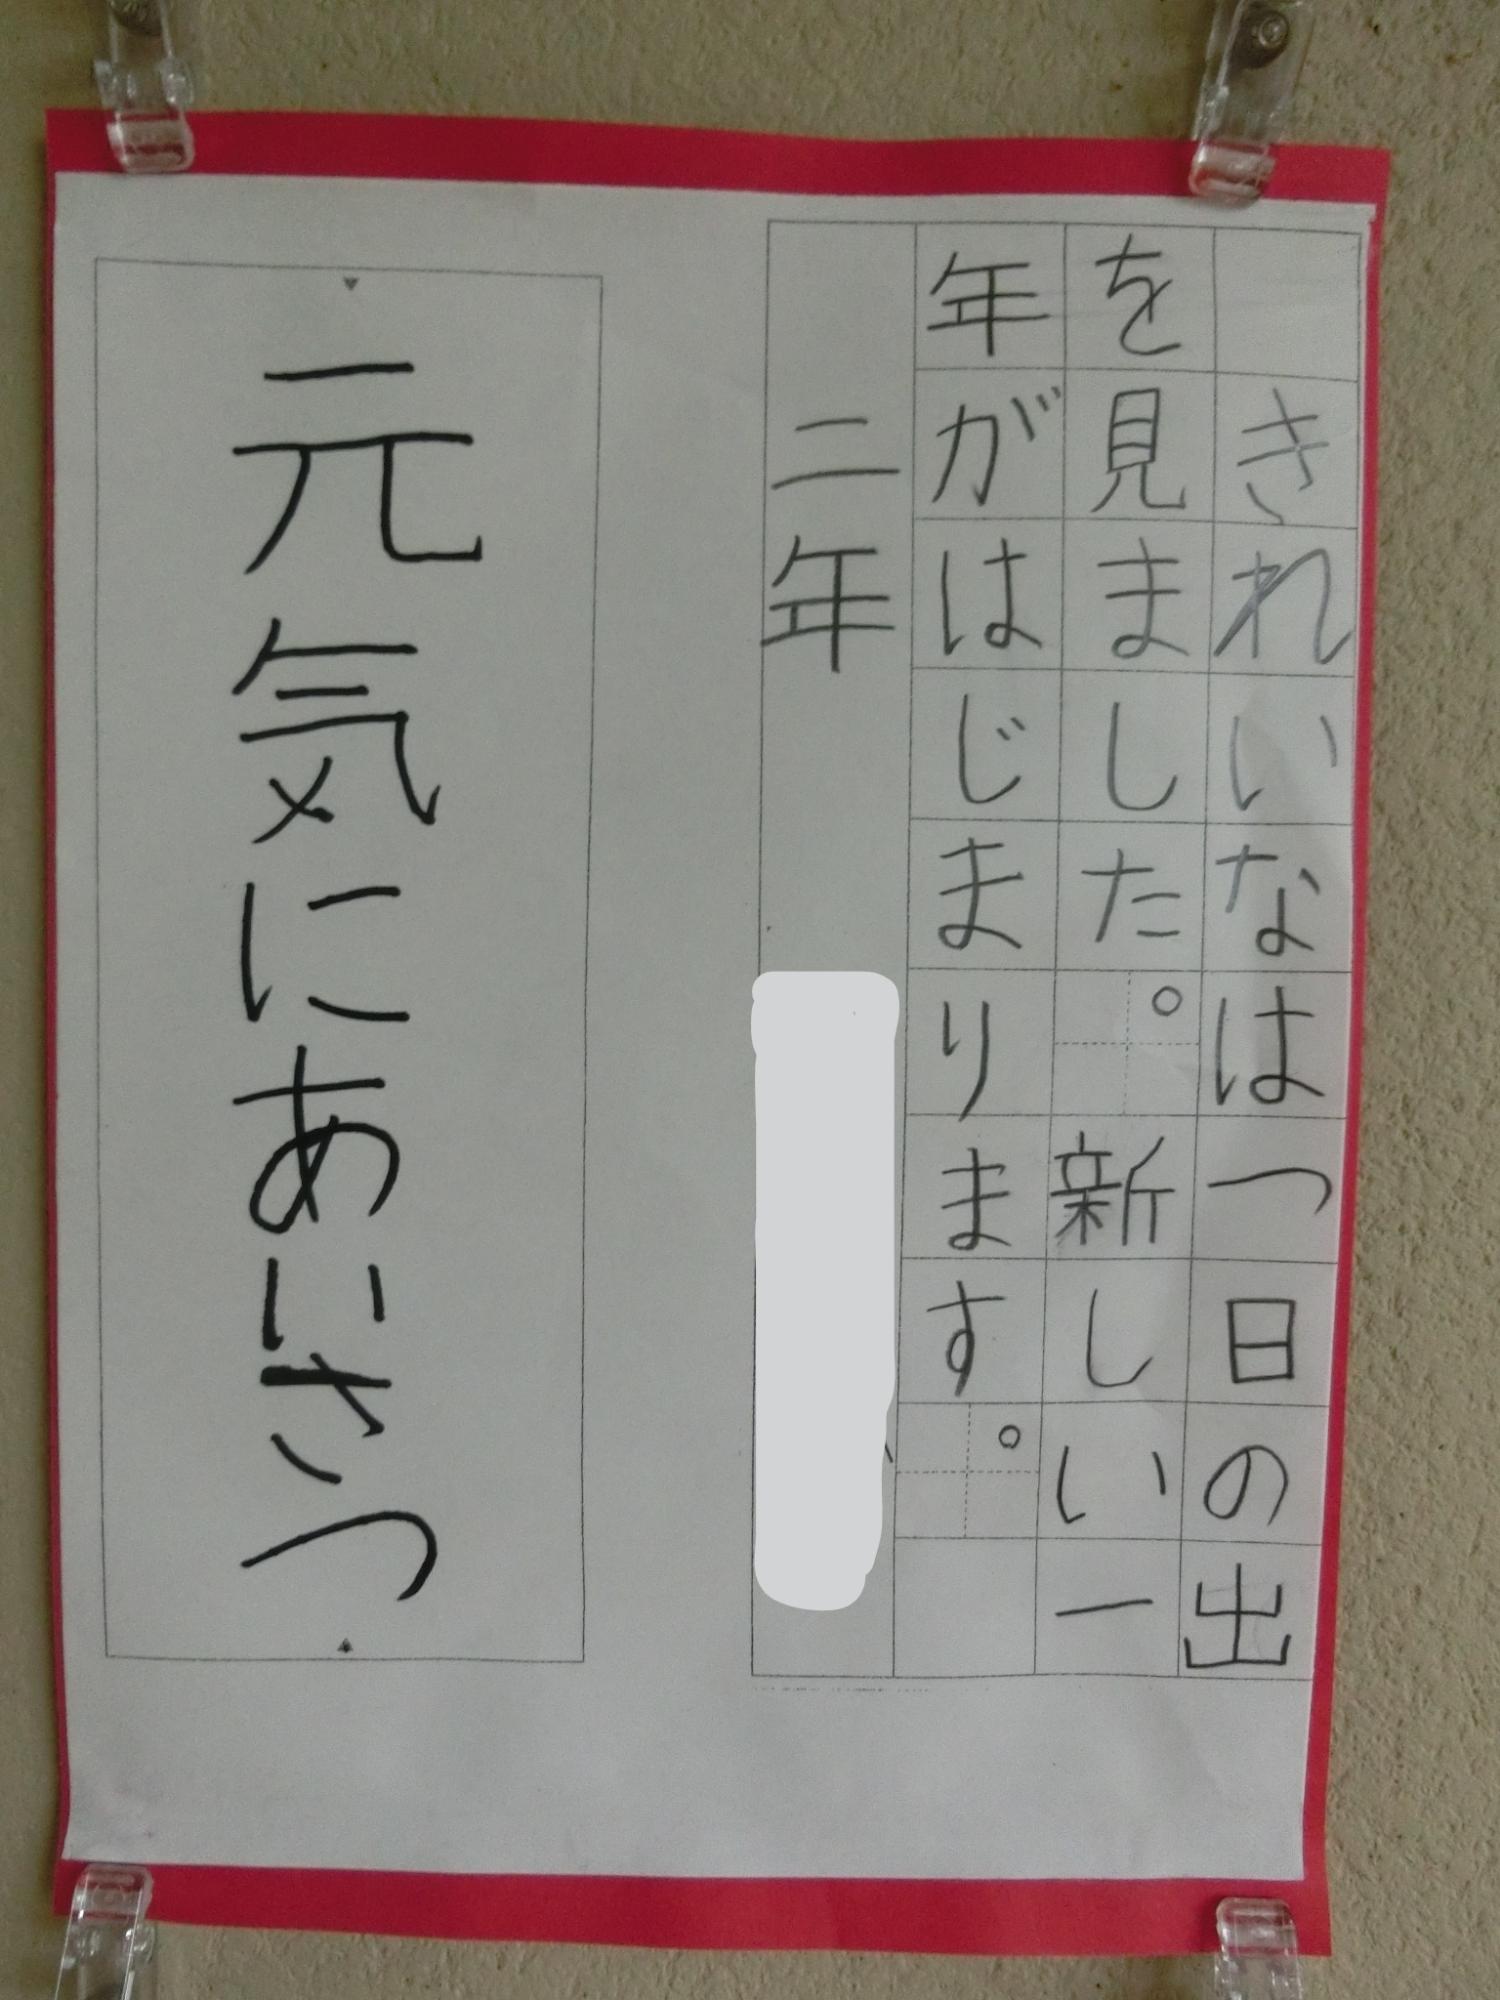 きれいなはつ日の出
を見ました。新しい一
年がはじまります。
二年
元気にあいさつ